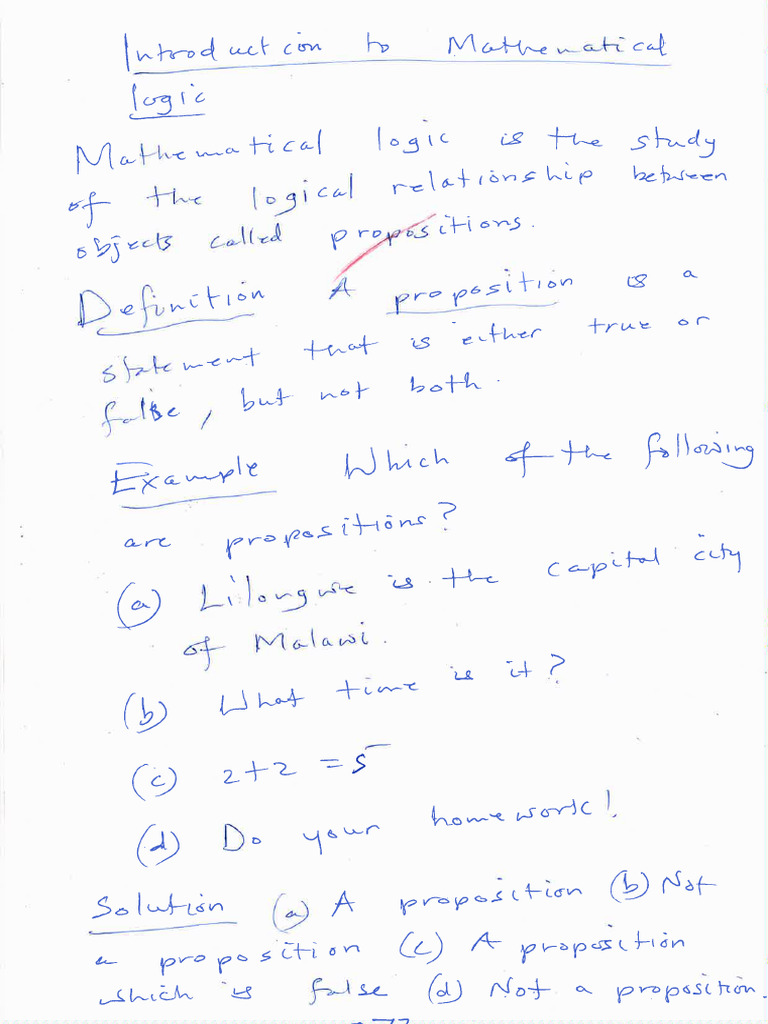 Introduction to Mathematical
logic
Mathematical logic is the study
of the logical relationship between
objects called propositions.
Definition A proposition is a
statement that is either true or
false, but not both.
Example Which of the following
are propositions?
(a) Lilongwe is the capital city
of Malawi.
(b) What time is it?
(c) 2+2 =5
(d) Do your homework!
Solution (a) A proposition (b) Not
a proposition (c) A proposition
which is false (d) Not a proposition.